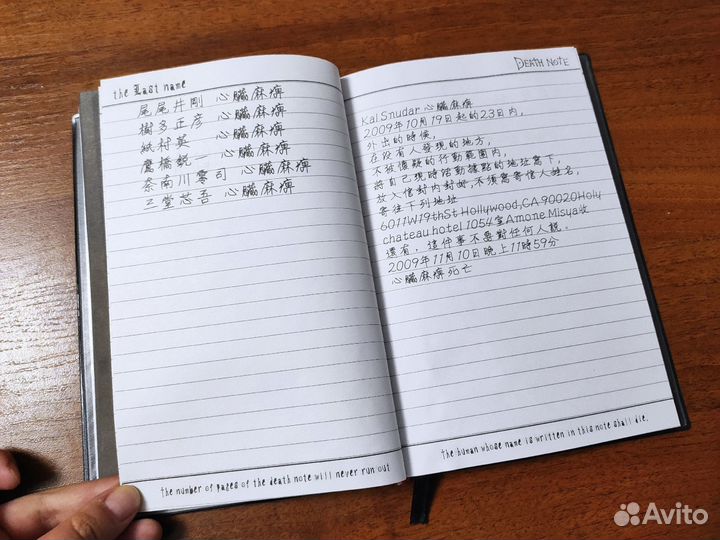 the Last name
尾尾井剛 心臟麻痺
樹多正彥 心臟麻痺
紙村英 心臟麻痺
鷹橋鋭一 心臟麻痺
奈南川零司 心臟麻痺
三堂芯吾 心臟麻痺
the number of pages of the death note will never run out
DEATH NOTE
Kal Snudar 心臟麻痺
2009年10月19日起的23日內,
外出的時候,
在沒有人發現的地方,
不被懷疑的行動範圍內,
將自己現時活動據點的地址寫下,
放入信封內封好,不須寫寄信人姓名,
寄往下列地址
6011W19thSt Hollywood,CA 90020Holy
chateau hotel 1054室Amone Misya收
還有, 這件事不要對任何人說.
2009年11月10日晚上11時59分
心臟麻痺死亡
the human whose name is written in this note shall die.
Avito